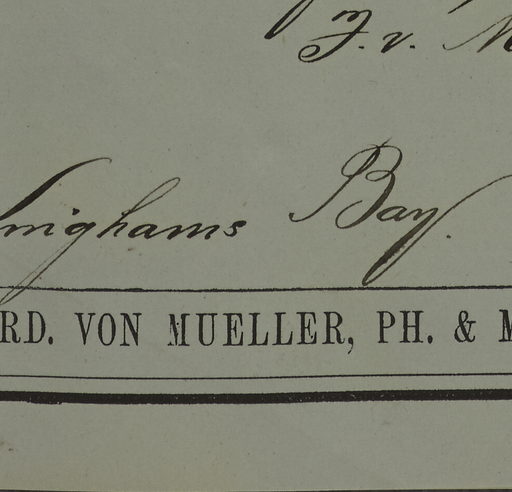 F. v. M
inghams Bay.
RD. VON MUELLER, PH. & M